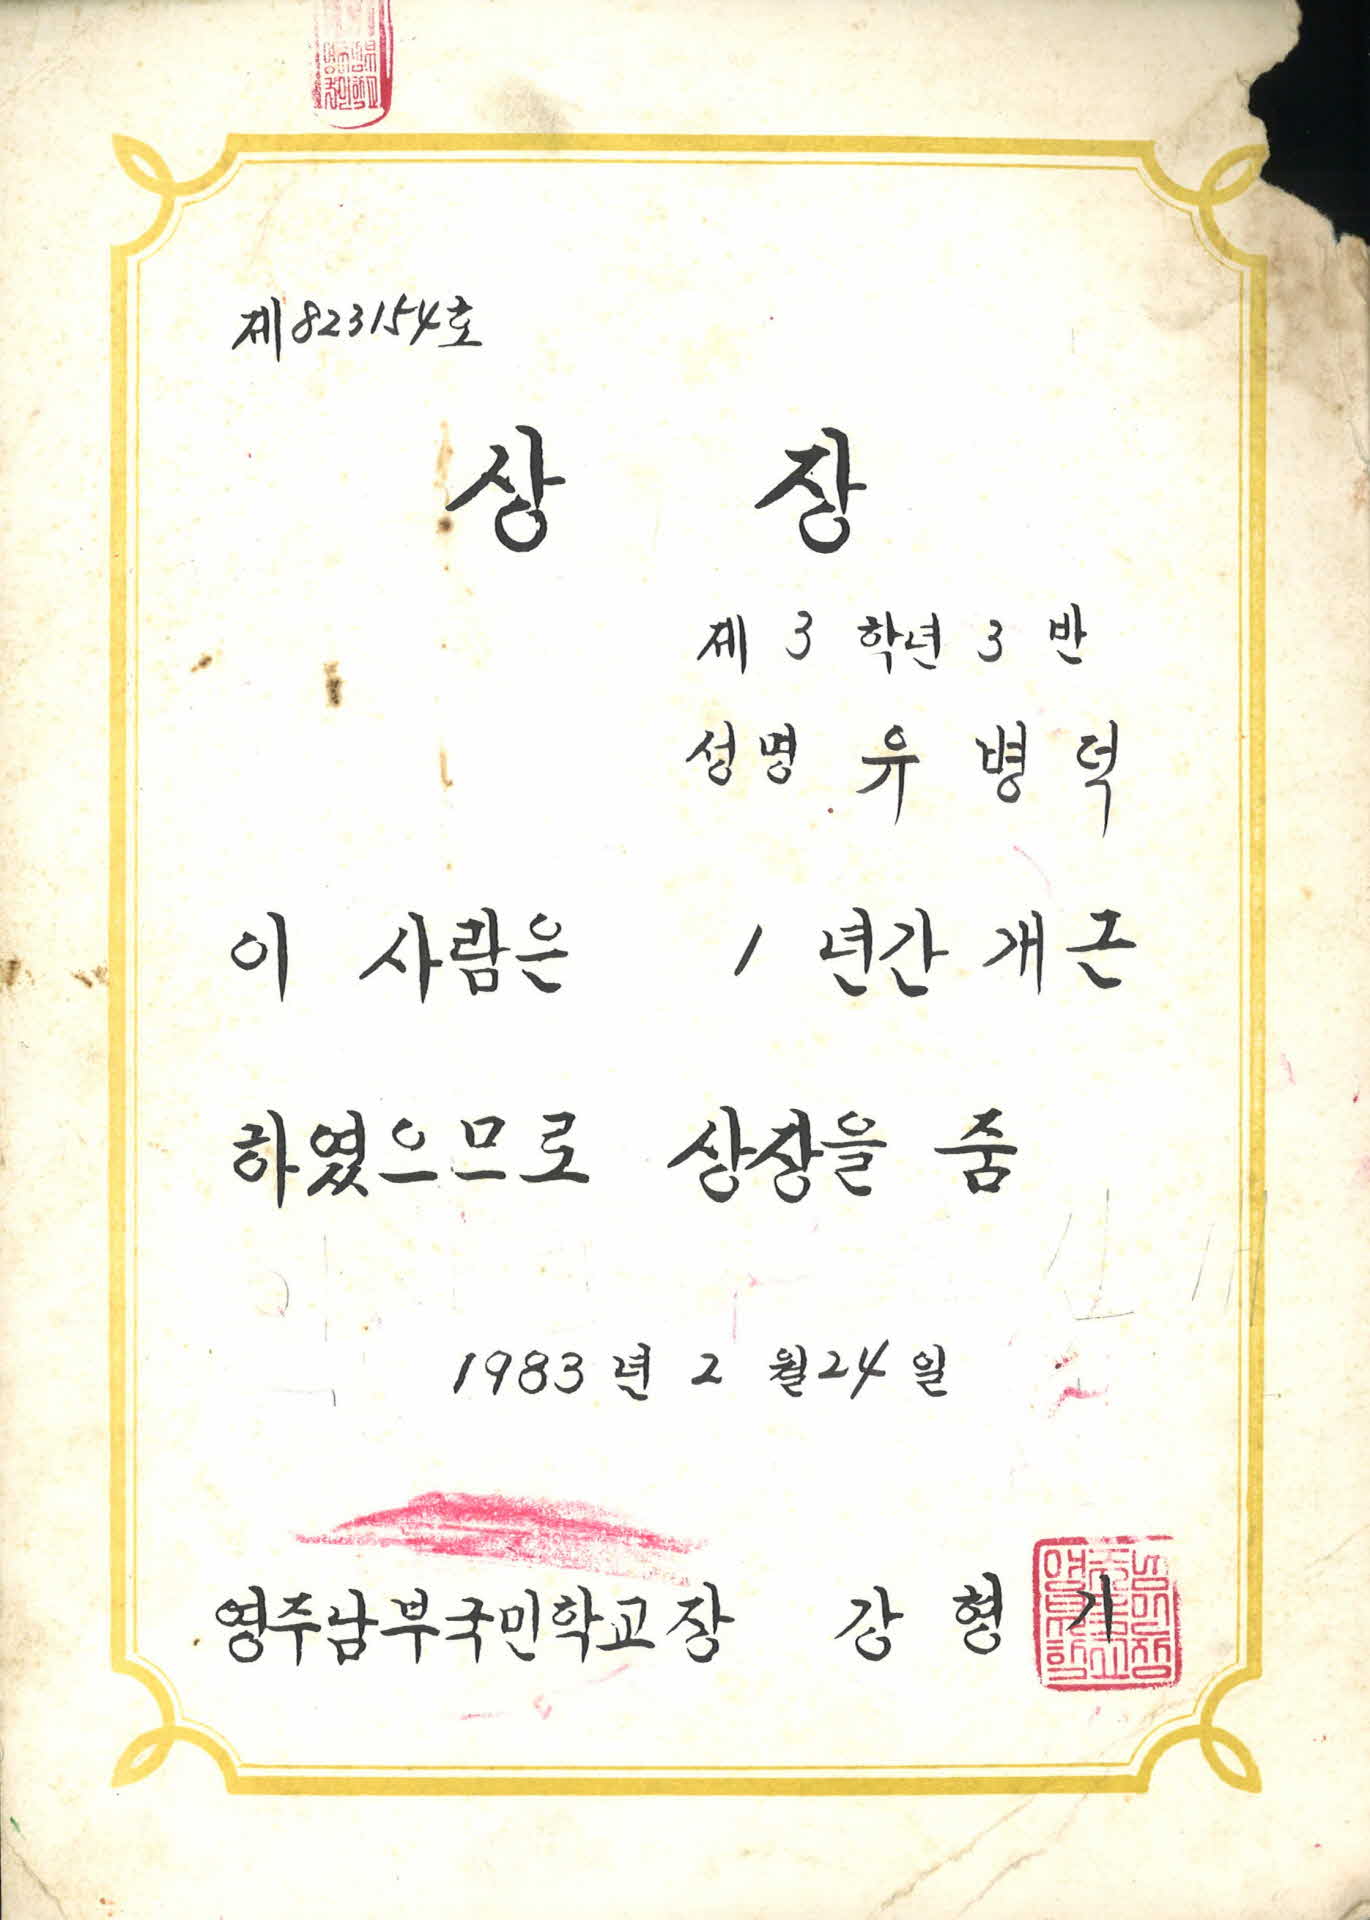 제823154호
상 장
제 3 학년 3 반
성명 유 병 덕
이 사람은 1 년간 개근
하였으므로 상장을 줌
1983 년 2 월 24 일
영주남부국민학교장 강 형 기